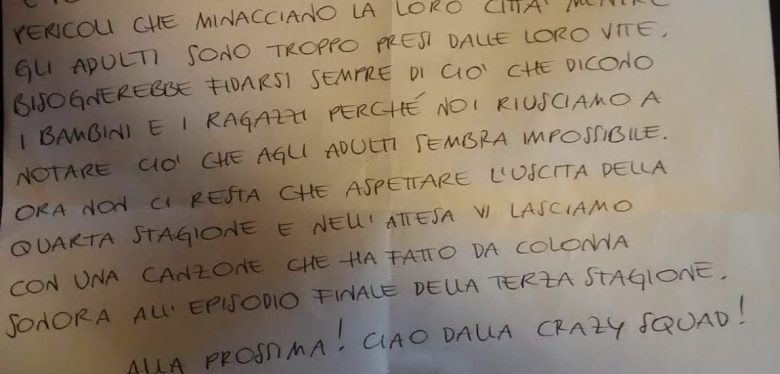 PERICOLI CHE MINACCIANO LA LORO CITTA' MENTRE
GLI ADULTI SONO TROPPO PRESI DALLE LORO VITE.
BISOGNEREBBE FIDARSI SEMPRE DI CIO' CHE DICONO
I BAMBINI E I RAGAZZI PERCHÉ NOI RIUSCIAMO A
NOTARE CIO' CHE AGLI ADULTI SEMBRA IMPOSSIBILE.
ORA NON CI RESTA CHE ASPETTARE L'USCITA DELLA
QUARTA STAGIONE E NELL'ATTESA VI LASCIAMO
CON UNA CANZONE CHE HA FATTO DA COLONNA
SONORA ALL'EPISODIO FINALE DELLA TERZA STAGIONE.
ALLA PROSSIMA! CIAO DALLA CRAZY SQUAD!